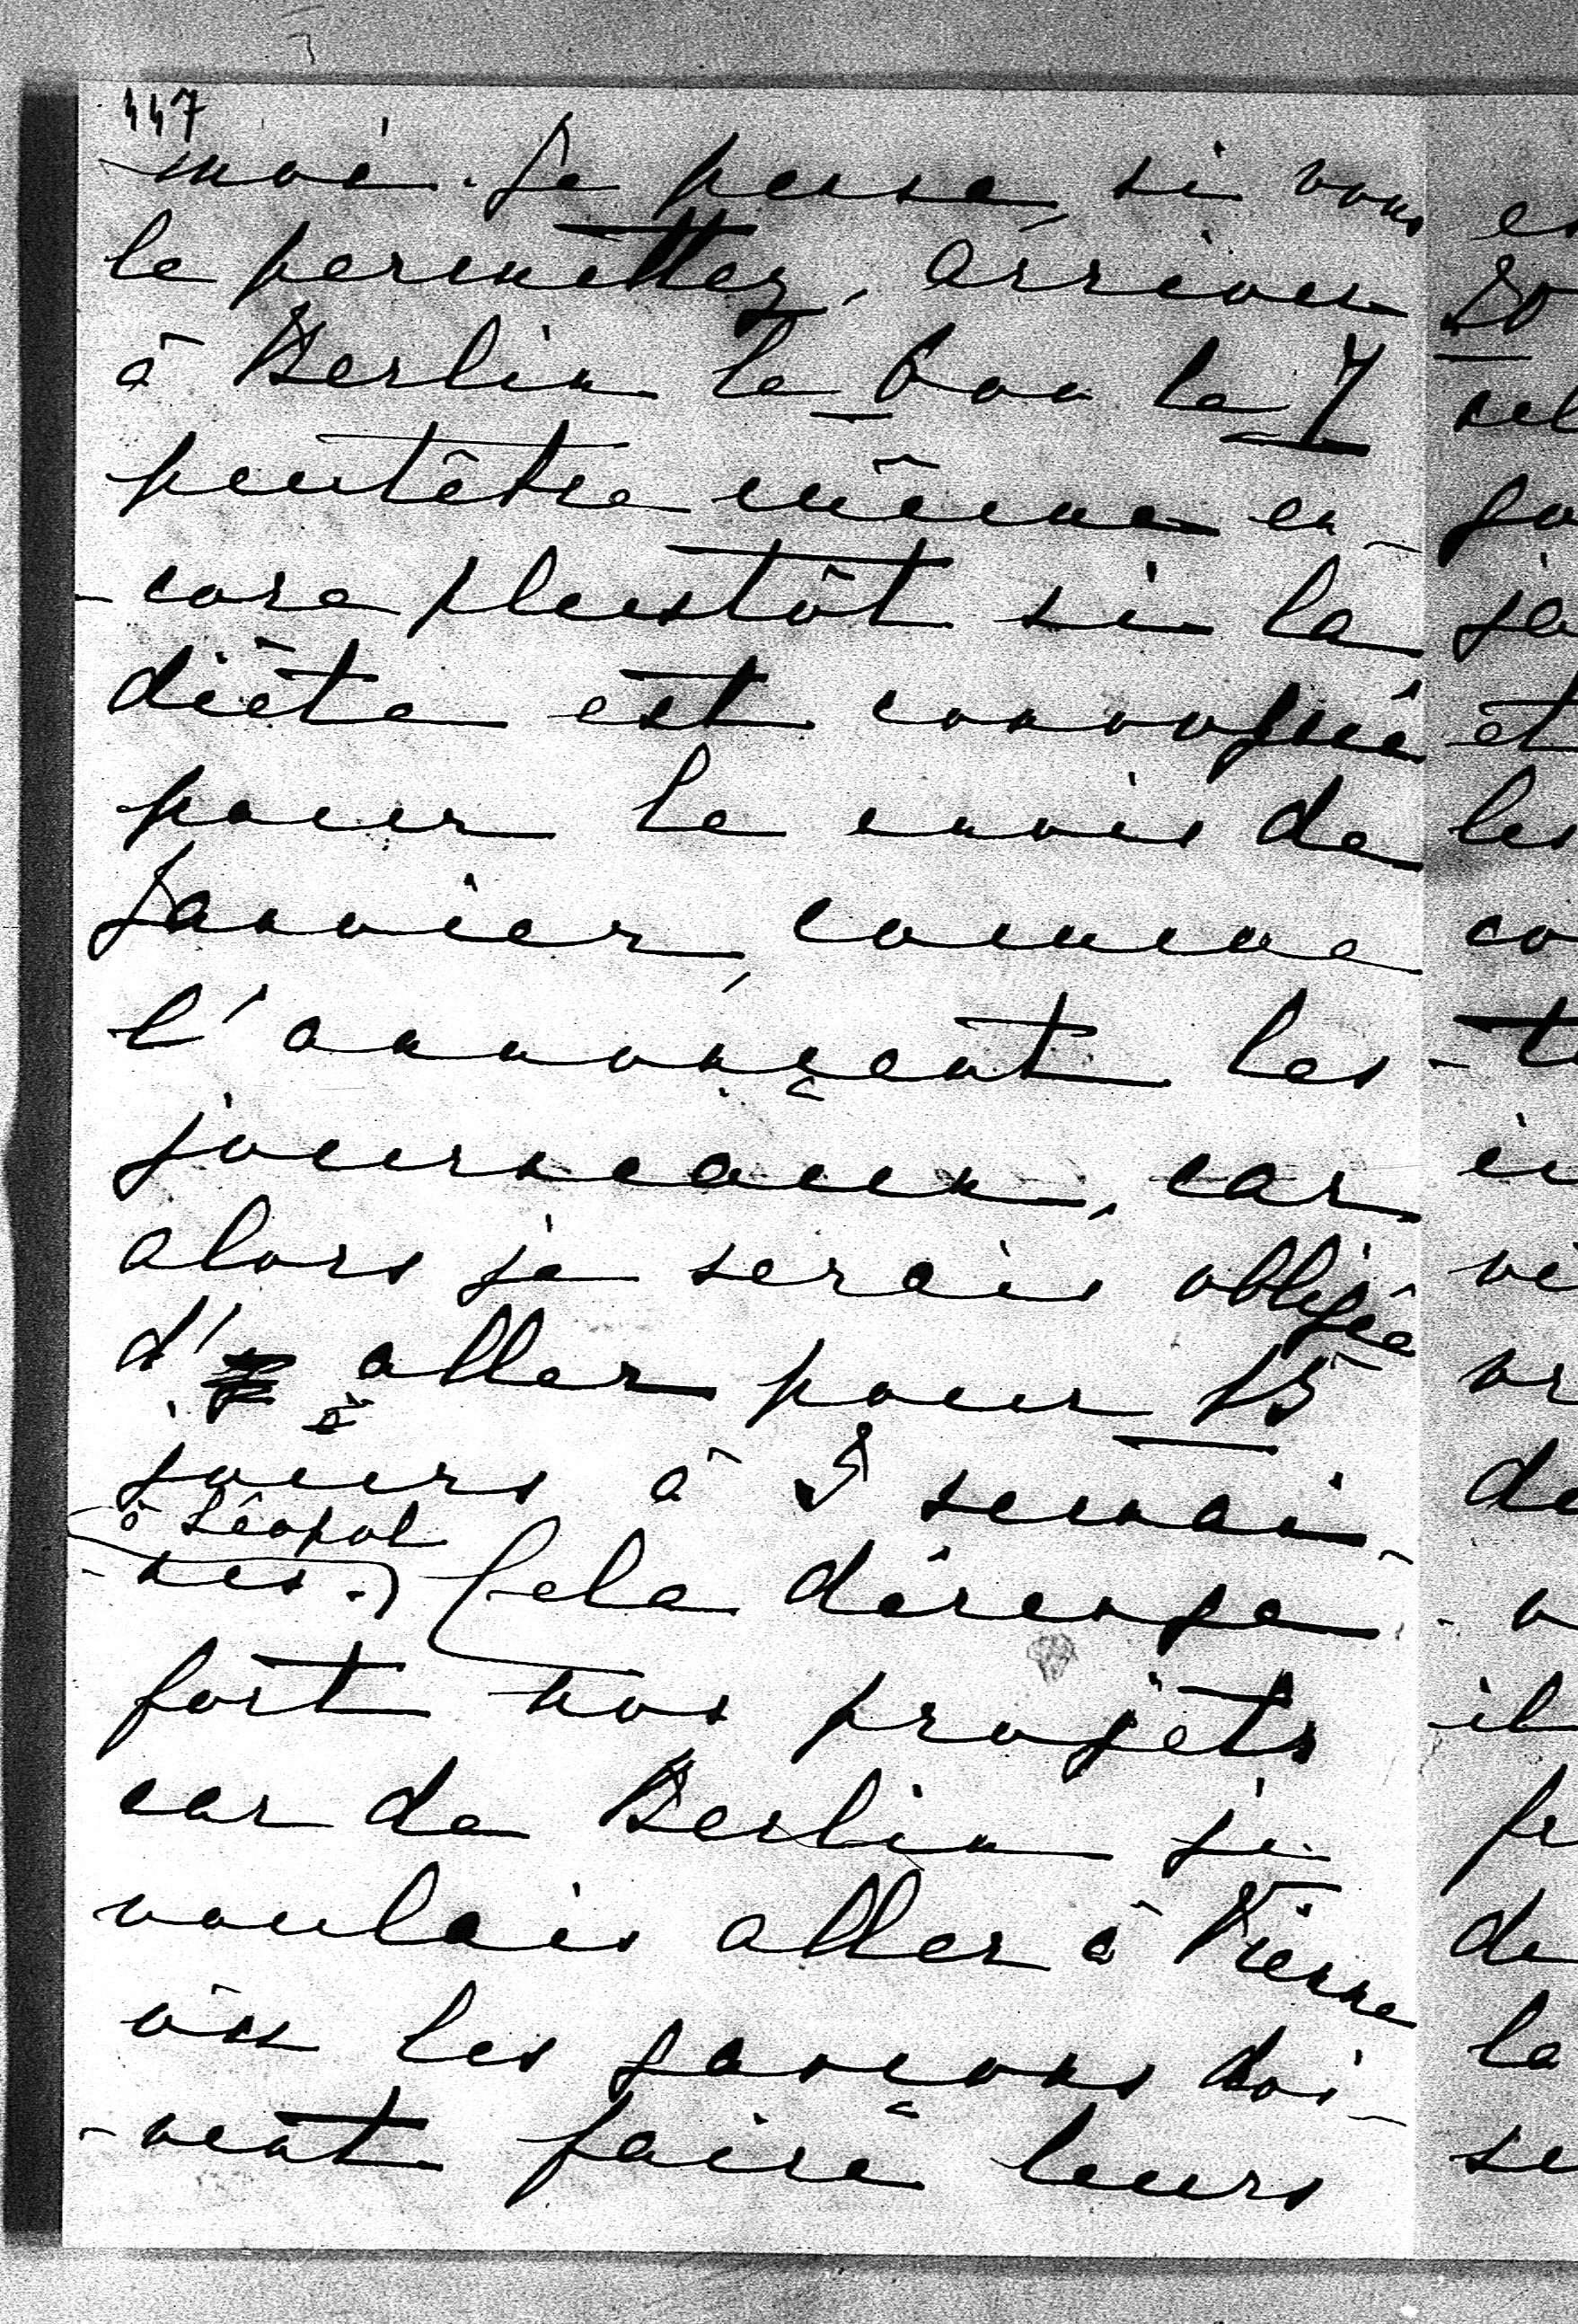 447
moi. Je pense, si vous
le permettez, arriver
à Berlin le 6 ou le 7
peutêtre même en-
-core plustôt si la
diète est convoquée
pour le mois de
Janvier, comme
l'annonçent les
journeaux, car
alors je serais obligée
d' aller pour 15
jours à 3 semai-
à Léopol
-nes.) Cela dérange
fort nos projets
car de Berlin je
voulais aller à Vienne
où les garçons doi-
-vent faire leurs